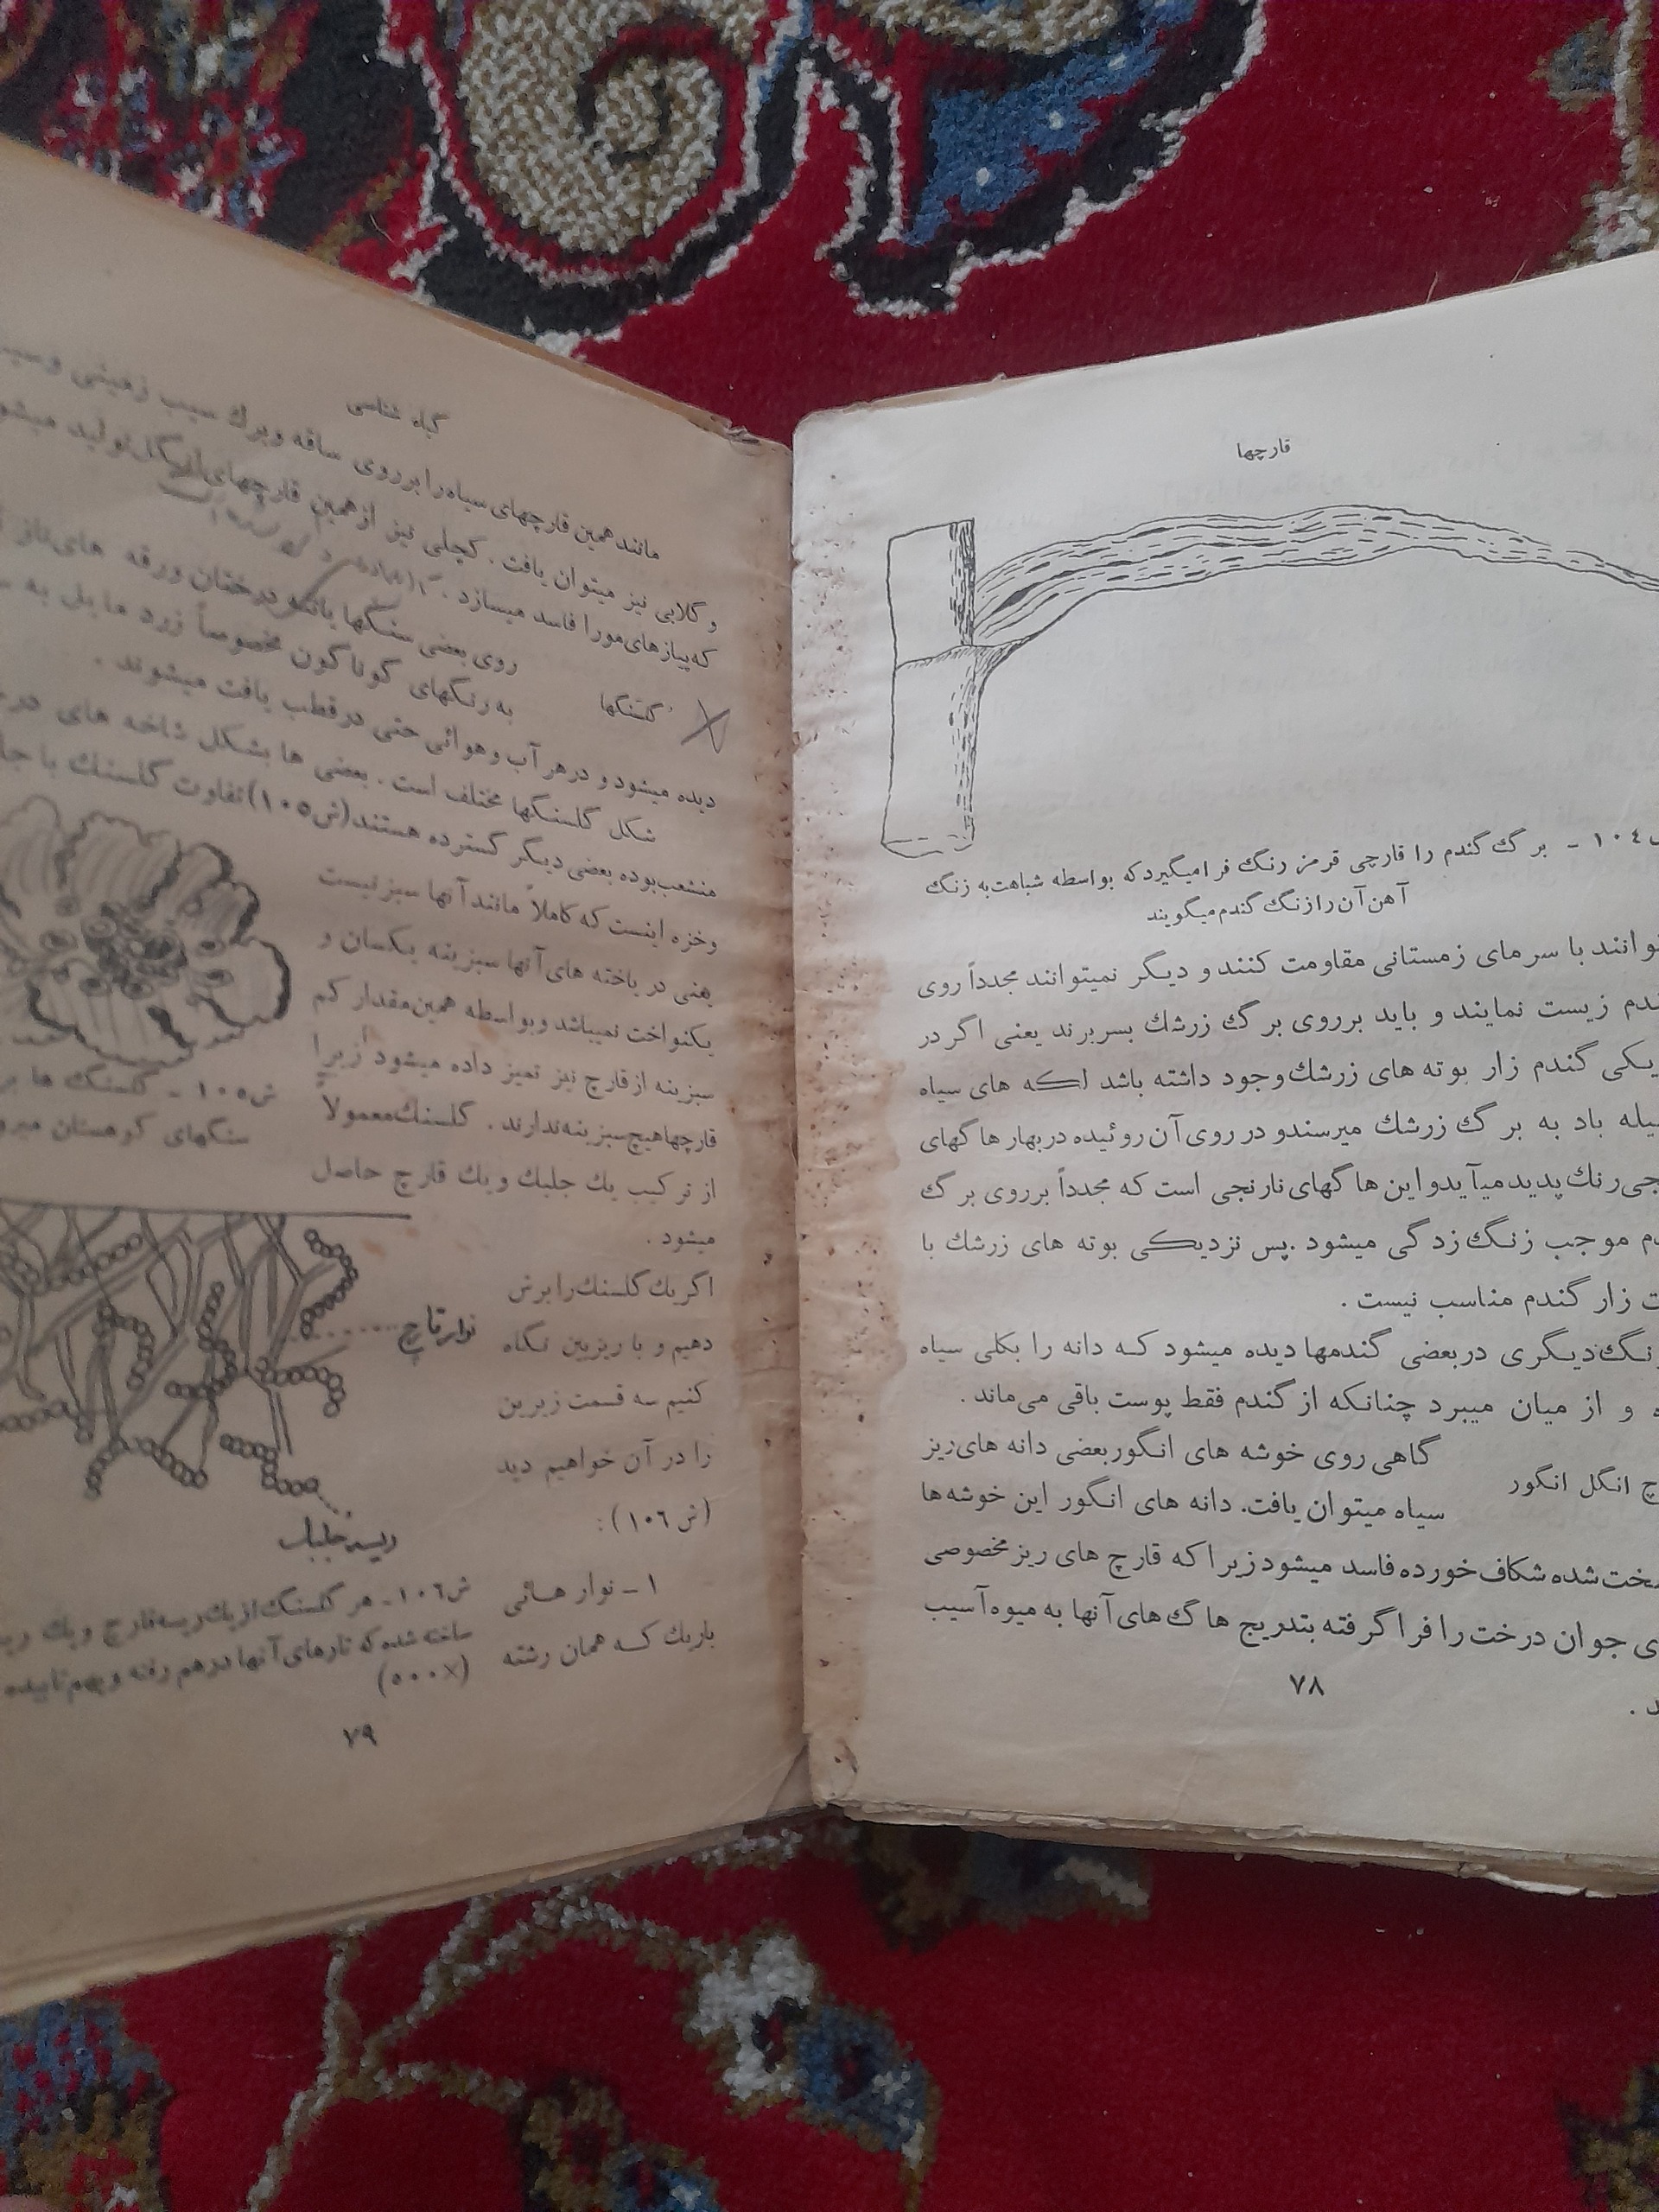 قارچها
١٠٤ - برگ گندم را قارچی قرمز رنگ فرامیگیردکه بواسطه شباهت به زنگ
آهن آن را زنگ گندم میگویند
با سرمای زمستانی مقاومت کنند و دیگر نمیتوانند مجدداً روی
زیست نمایند و باید برروی برگ زرشك بسربرند یعنی اگر در
گندم زار بوته های زرشك وجود داشته باشد لکه های سیاه
باد به برگ زرشك میرسندو در روی آن روئیده در بهار هاگهای
رنك پدید میآیدو این هاگهای نارنجی است که مجدداً برروی برگ
موجب زنگ زدگی میشود. پس نزدیکی بوته های زرشك با
زار گندم مناسب نیست .
دیگری دربعضی گندمها دیده میشود که دانه را بکلی سیاه
و از میان میبرد چنانکه از گندم فقط پوست باقی می‌ماند .
انگل انگور
گاهی روی خوشه های انگور بعضی دانه های ریز
سیاه میتوان یافت. دانه های انگور این خوشه‌ها
شده شکاف خورده فاسد میشود زیرا که قارچ های ریز مخصوصی
جوان درخت را فرا گرفته بتدریج هاگ های آنها به میوه آسیب
٧٨
گیاه شناسی
مانند همین قارچهای سیاه را برروی ساقه و برك سیب زمینی و
و گلابی نیز میتوان یافت . کچلی نیز از همین قارچهای انگل تولید
که پیازهای مو را فاسد میسازد .
گلسنگها
روی بعضی سنگها یا تنه درختان ورقه های نازك
به رنگهای گوناگون مخصوصاً زرد مایل به
دیده میشود و در هر آب و هوائی حتی در قطب یافت میشوند .
شکل گلسنگها مختلف است . بعضی ها بشکل شاخه های
منشعب بوده بعضی دیگر گسترده هستند (ش ١٠٥) تفاوت گلسنك با
وخزه اینست که کاملاً مانند آنها سبز نیست
یعنی در یاخته های آنها سبزینه یکسان و
یکنواخت نمیباشد و بواسطه همین مقدار کم
سبزینه از قارچ نیز تمیز داده میشود زیرا
قارچها هیچ سبزینه ندارند . گلسنك معمولاً
از ترکیب یك جلبك و یك قارچ حاصل
میشود .
ش ١٠٥ - گلسنگ ها
سنگهای کوهستان
اگر یك گلسنك را برش
دهیم و با ریزبین نگاه
کنیم سه قسمت زیرین
را در آن خواهیم دید
(ش ١٠٦) :
١ - نوار هائی
باریك که همان رشته
نوار قارچ
ریسه جلبك
ش ١٠٦ - هر گلسنگ از یك ریسه قارچ و یك
ساخته شده که تارهای آنها درهم رفته و بهم تابیده
(٥٠٠×)
٧٩